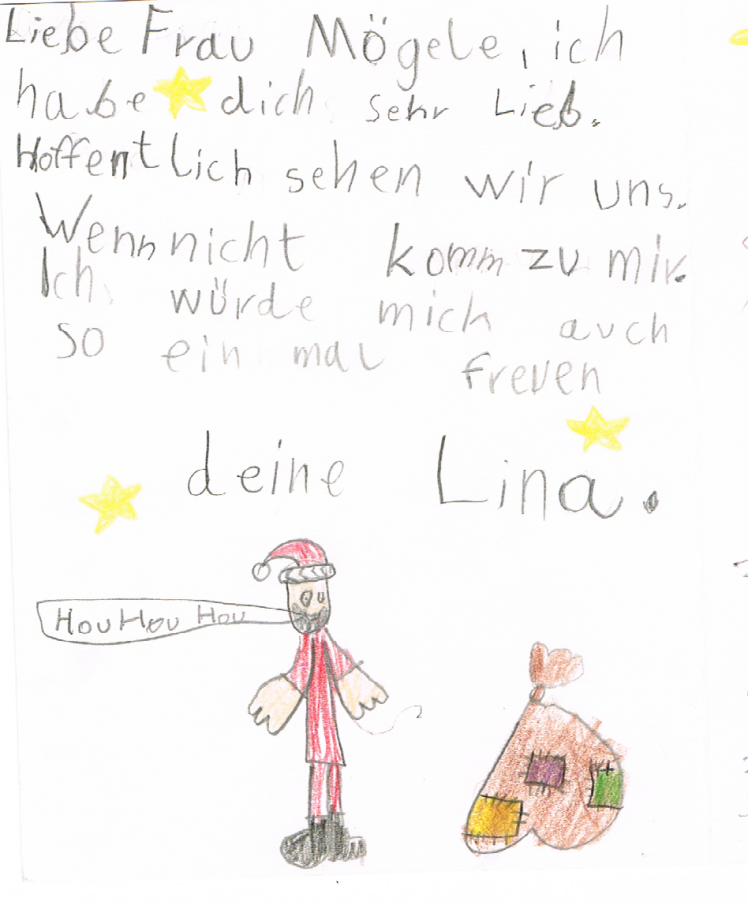 Liebe Frau Mögele, ich
habe dich sehr Lieb.
Hoffentlich sehen wir uns.
Wenn nicht komm zu mir.
Ich würde mich auch
so ein mal freuen
deine Lina.
Hou Hou Hou